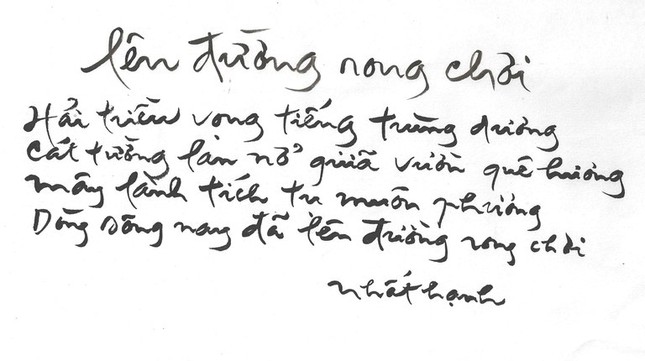 lên đường rong chơi
Hải triều vọng tiếng trùng dương
Cát tường lan nở giữa vườn quê hương
mây lành tích tụ muôn phương
Dòng sông nay đã lên đường rong chơi
nhất hạnh